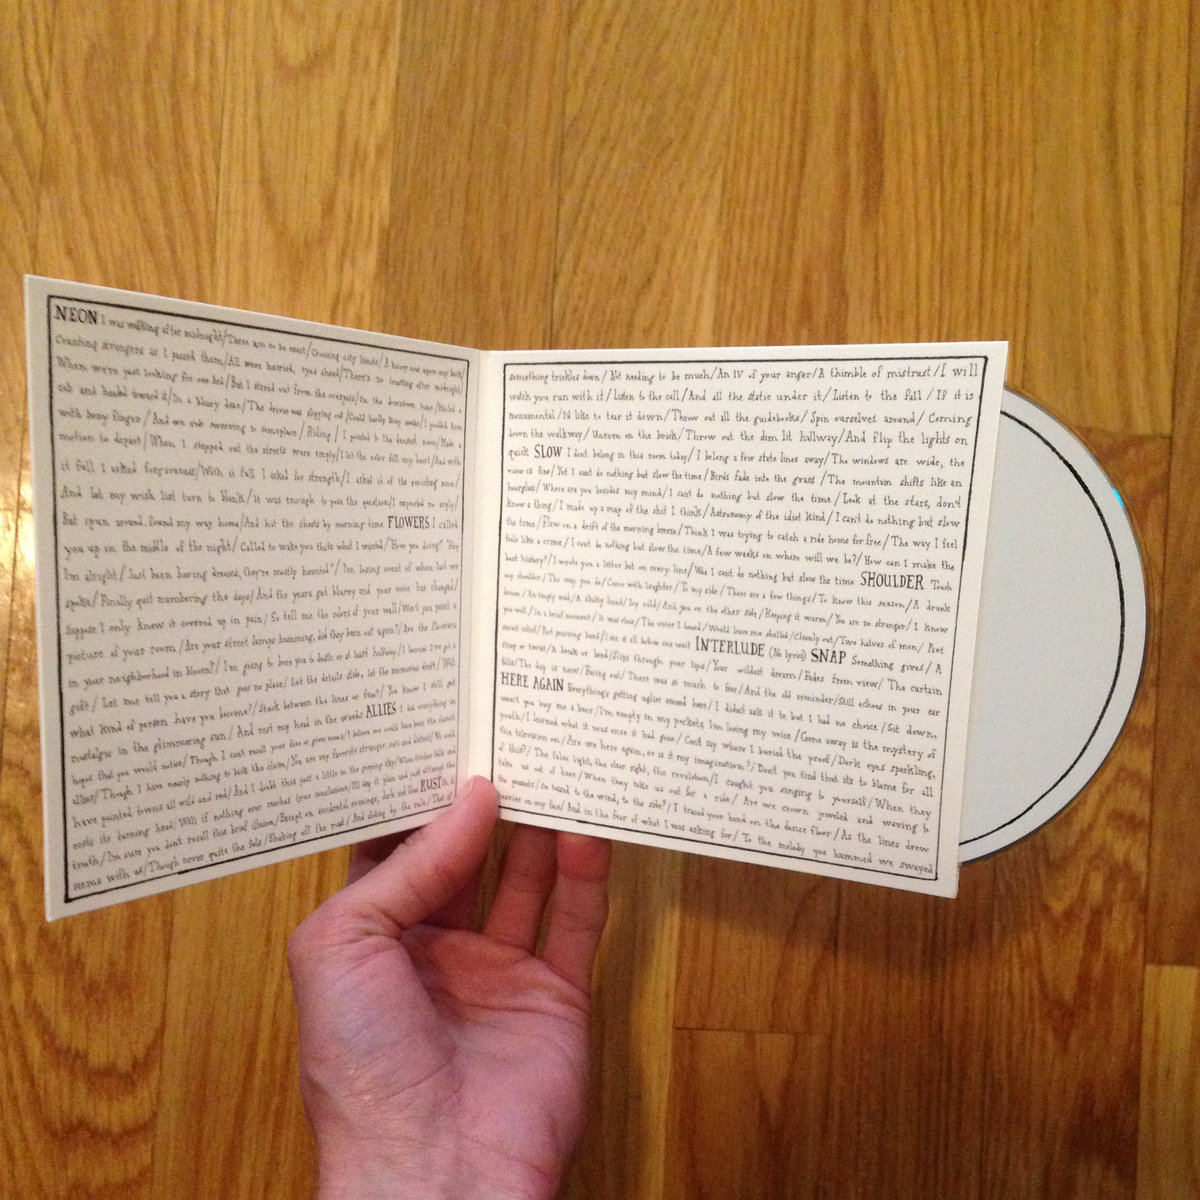 NEON I was walking after midnight/Three am to be exact/Crossing city limits/A heavy coat upon my back/
Counting strangers as I passed them/All were hurried, eyes ahead/There's no trusting after midnight/
When we're just looking for our bed/But I stared out from the overpass/On the downtown haze/Hailed a
cab and headed toward it/In a blurry daze/The driver was slipping and/Could hardly keep awake/I
with bony finger/And we rode swerving to someplace/Riding/I pointed to the nearest neon/Made a
motion to depart/When I stepped out the streets were empty/I let the color fill my heart/And with
it full I asked forgiveness/With it full I asked for strength/I asked it of the swirling neon/
And let my wish list turn to blank/It was enough to pose the question/I expected no reply/
But spun around found my way home/And hit the sheets by morning time FLOWERS I called
you up in the middle of the night/Called to wake you that's what I wanted/"How you doing?" "Hey
I'm alright/Just been having dreams, they're mostly haunted"/I'm losing count of when last we
spoke/Finally quit numbering the days/And the years get blurry and your voice has changed/
Suppose I only knew it covered up in pain/So tell me the colors of your wall/Won't you paint a
picture of your room/Are your street lamps humming, did they burn out again?/Are the flowers
in your neighborhood in bloom?/I'm going to bore you to death or at least halfway/I heard I've got a
gift/Let me tell you a story that goes no place/Let the details slide, let the memories drift/Will
what kind of person have you become?/Stuck between the lines or free?/You know I still get
nostalgic in the glimmering sun/And rest my head in the weeds ALLIES I did everything in
hopes that you would notice/Though I can't recall your face or given name/I believe we could have been the closest
allies/Though I have nearly nothing to back the claim/You are my favorite stranger, cast and distant/We would
have painted towns all wild and red/And I doubt that just a little in the passing day/When October falls and
rests its turning head/Will if nothing ever reaches true conclusions/I'll say it plain and just attempt the
truth/I'm sure you don't recall this brief illusion/Except on accidental evenings, dark and blue RUST
seems with us/Though never quite the bids/Shaking off the rust/And abiding by the rule/That if
something trickles down/Not needing to be much/An IV of your anger/A thimble of mistrust/I will
watch you run with it/Listen to the call/And all the static under it/Listen to the fall/If it is
monumental/I'd like to tear it down/Throw out all the guidebooks/Spin ourselves around/Coming
down the walkway/Uneven on the brick/Throw out the dim lit hallway/And flip the lights on
quick SLOW I don't belong in this room today/I belong a few state lines away/The windows are wide, the
view is fine/Yet I can't do nothing but slow the time/Birds fade into the grass/The mountain shifts like an
hourglass/Where are you besides my mind/I can't do nothing but slow the time/Look at the stars, don't
know a thing/I made up a map of the shit I think/Astronomy of the idiot kind/I can't do nothing but slow
the time/Flew on a drift of the morning breeze/Think I was trying to catch a ride home for free/The way I feel
feels like a crime/I can't do nothing but slow the time/A few weeks on where will we be?/How can I make the
best history?/I wrote you a letter but on every line/Was I can't do nothing but slow the time SHOULDER Touch
my shoulder/The way you do/Come with laughter/To my side/There are a few things/To know this season/A drunk
dream/An empty road/A shaky hand/Icy cold/And you on the other side/Keeping it warm/You are no stranger/I know
you well/In a brief moment/It was clear/The voice I heard/Would leave me shelled/Cleanly out/Two halves of man/Part
sweet relief/But yearning hard/I see it all before me wait INTERLUDE (No lyrics) SNAP Something gives/A
snap or twist/A break or bend/Slips through your lips/Your wildest dreams/Fades from view/The curtain
falls/The day is new/Buring out/There was so much to fear/And the old reminder/Still echoes in your ear
HERE AGAIN Everything's getting uglier around here/I didn't ask it to, but I had no choice/Sit down,
won't you buy me a beer/I'm empty in my pockets, I'm losing my voice/Come away is the mystery of
youth/I learned what it was once it had gone/Can't say where I buried the proof/Dark eyes sparkling,
the television on/Are we here again, or is it my imagination?/Don't you find that it's to blame for all
of this?/The false light, the clear sight, the revelation/I caught you singing to yourself/When they
take us out of here/When they take us out for a ride/Are we crowned jeweled and waving to
the peasants/Or tossed to the wind, to the side?/I traced your hand on the dance floor/As the lines drew
heavier on my face/And in the fear of what I was asking for/To the melody you hummed we swayed